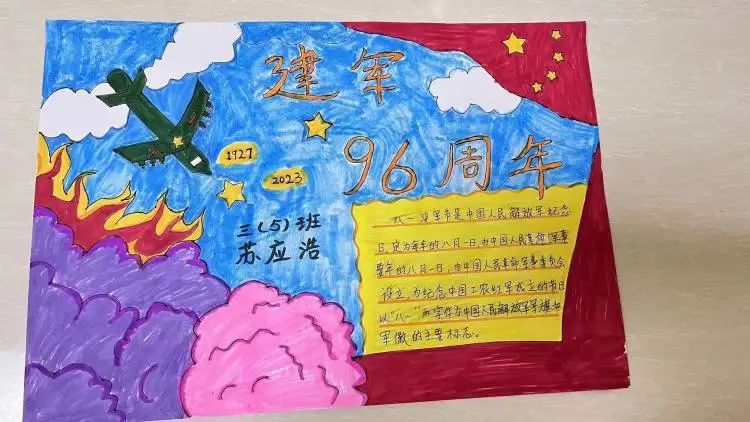 建军
96周年
1927
2023
三(5)班
苏应浩
八一建军节是中国人民解放军纪念
日,定为每年的八月一日,由中国人民革命军事
每年的八月一日,由中国人民革命军事委员会
设立,为纪念中国工农红军成立的节日
以“八一”两字作为中国人民解放军军旗和
军徽的主要标志。